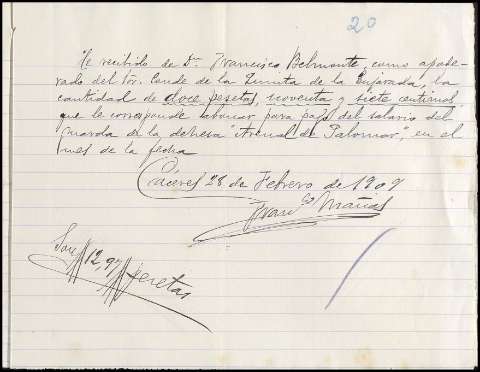 20
He recibido de Dn. Francisco Belmonte, como apode-
rado del Sor. Conde de la Quinta de la Enjarada, la
cantidad de doce pesetas, noventa y siete centimos
que le corresponde abonar para pago del salario del
Guarda de la dehesa "Arenal de Palomar", en el
mes de la fecha
Cáceres 28 de Febrero de 1907
Franco Mañas
Son 12,97 pesetas